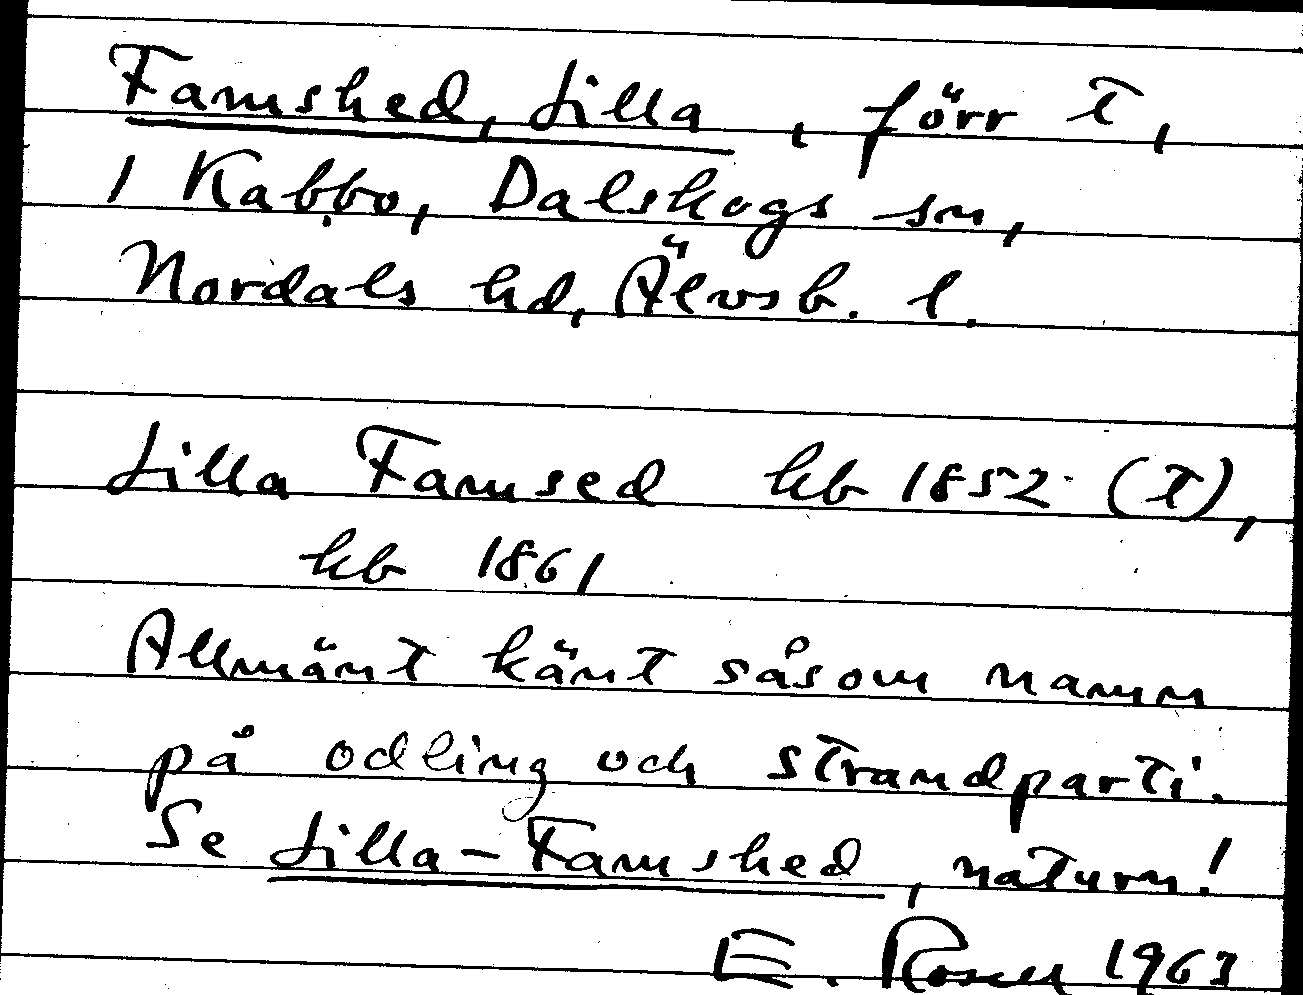 Famshed, Lilla, förr t,
1 Kabbo, Dalskogs sn,
Nordals hd, Älvsb. l.
Lilla Famsed hb 1852 (t),
hb 1861
Allmänt känt såsom namn
på odling och strandparti.
Se Lilla-Famshed, naturn!
E. Rosen 1963